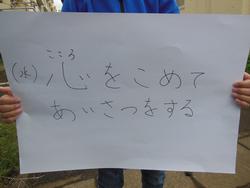 こころ
(水) 心をこめて
あいさつをする